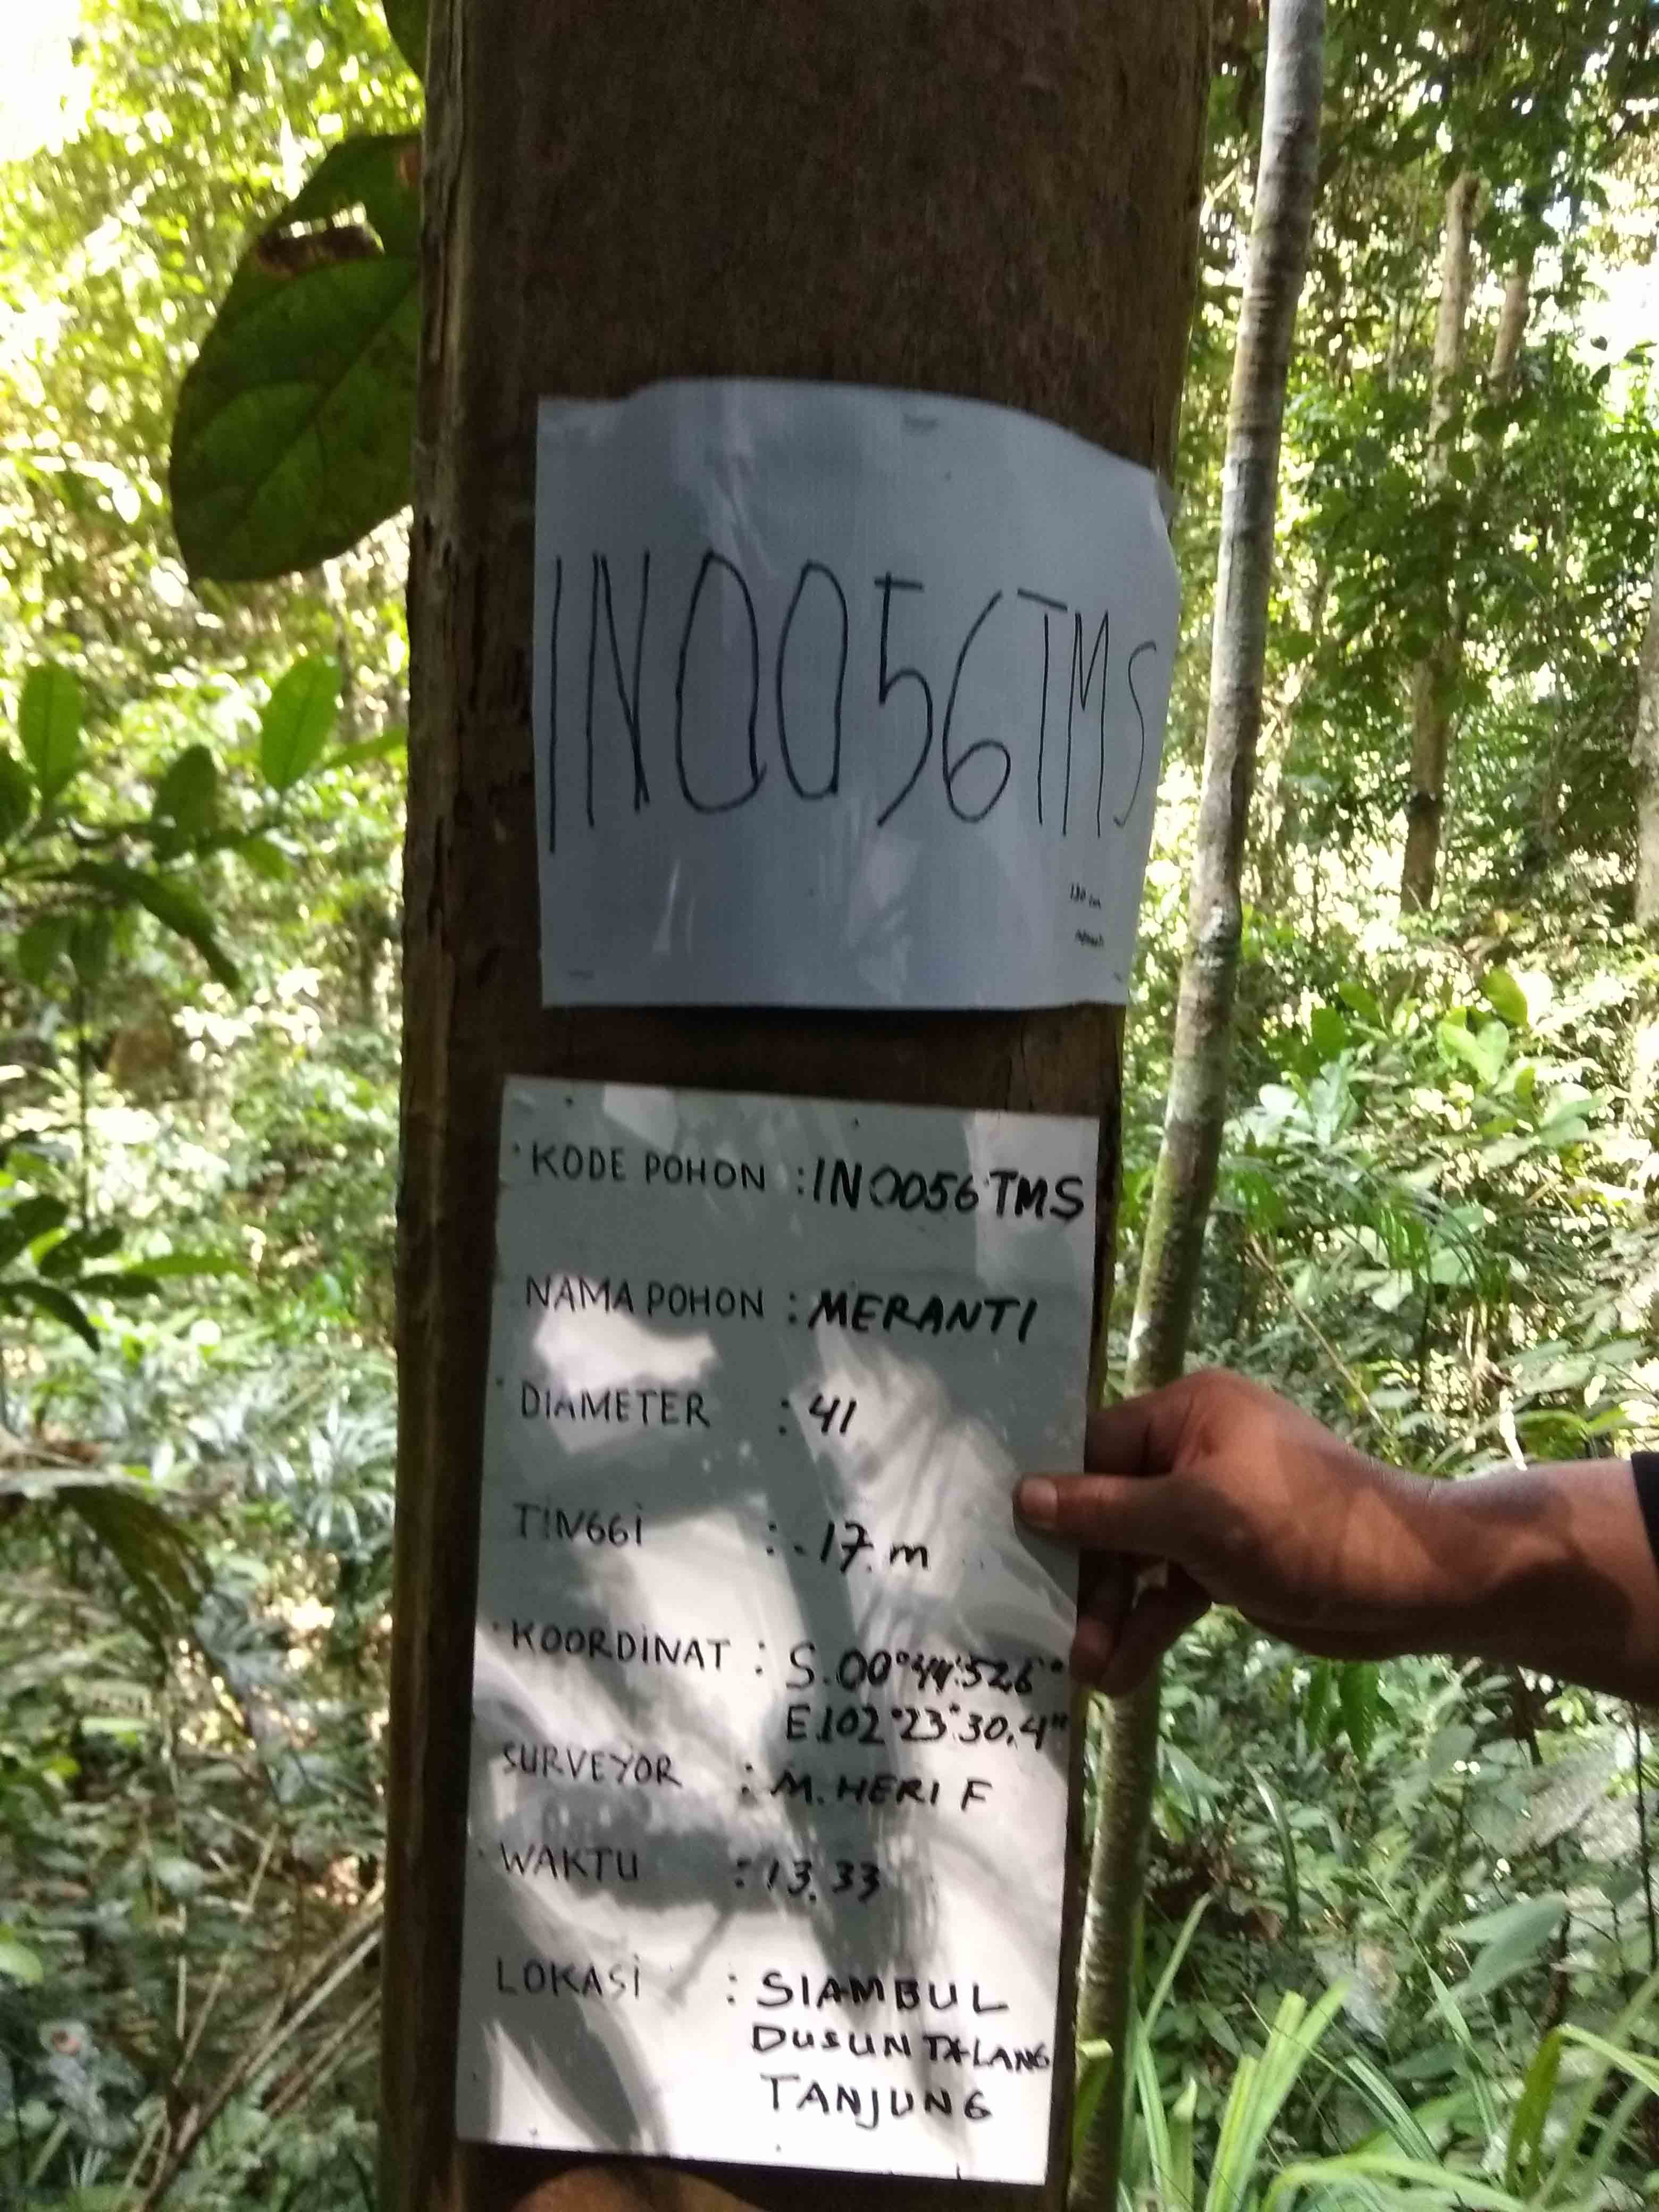 IN0056TMS
130 cm
KODE POHON : IN0056 TMS
NAMA POHON : MERANTI
DIAMETER : 41
TINGGI : 17 m
KOORDINAT : S.00°44'52.6"
E.102°23'30.4"
SURVEYOR : M. HERI F
WAKTU : 13.33
LOKASI : SIAMBUL
DUSUN TALANG
TANJUNG